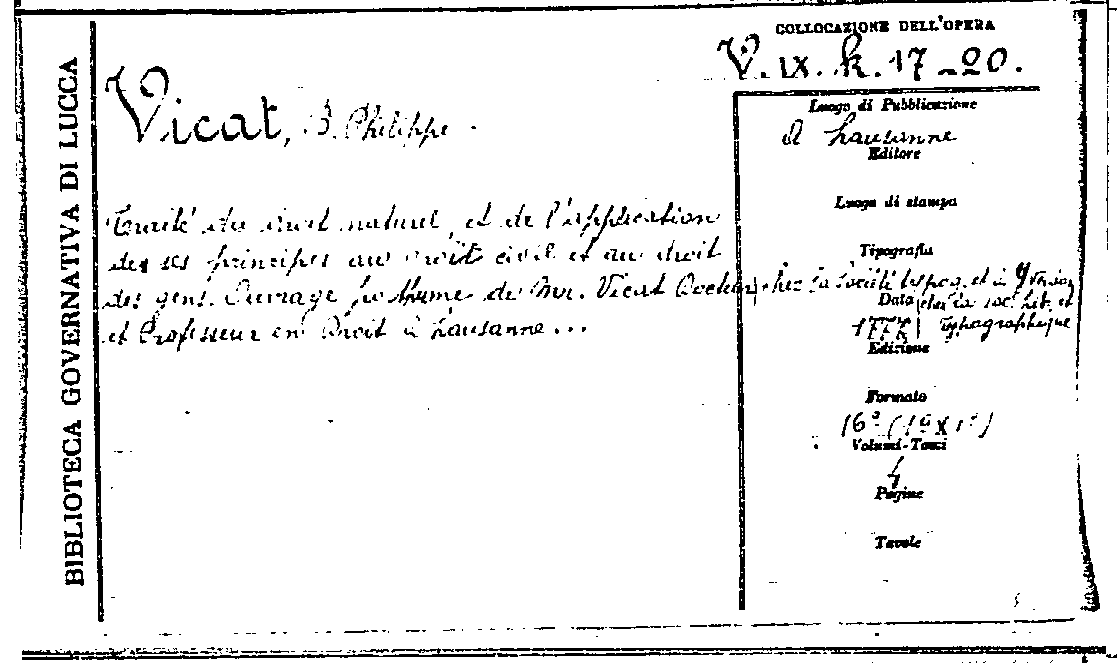 BIBLIOTECA GOVERNATIVA DI LUCCA
COLLOCAZIONE DELL'OPERA
V. IX. k. 17-20.
Vicat, B. Philippe.
Traité du droit naturel, et de l'application
des ses principes au droit civil et au droit
des gens. Ouvrage posthume de Mr. Vicat Docteur
et Professeur en Droit à Lausanne...
Luogo di Pubblicazione
A Lausanne
Editore
Luogo di stampa
Tipografia
chez la Société typog. et à Yverdon
chez la soc. Lit. et
Typographique
Data
Edizione
Formato
16º
Volumi-Tomi
4
Pagine
Tavole